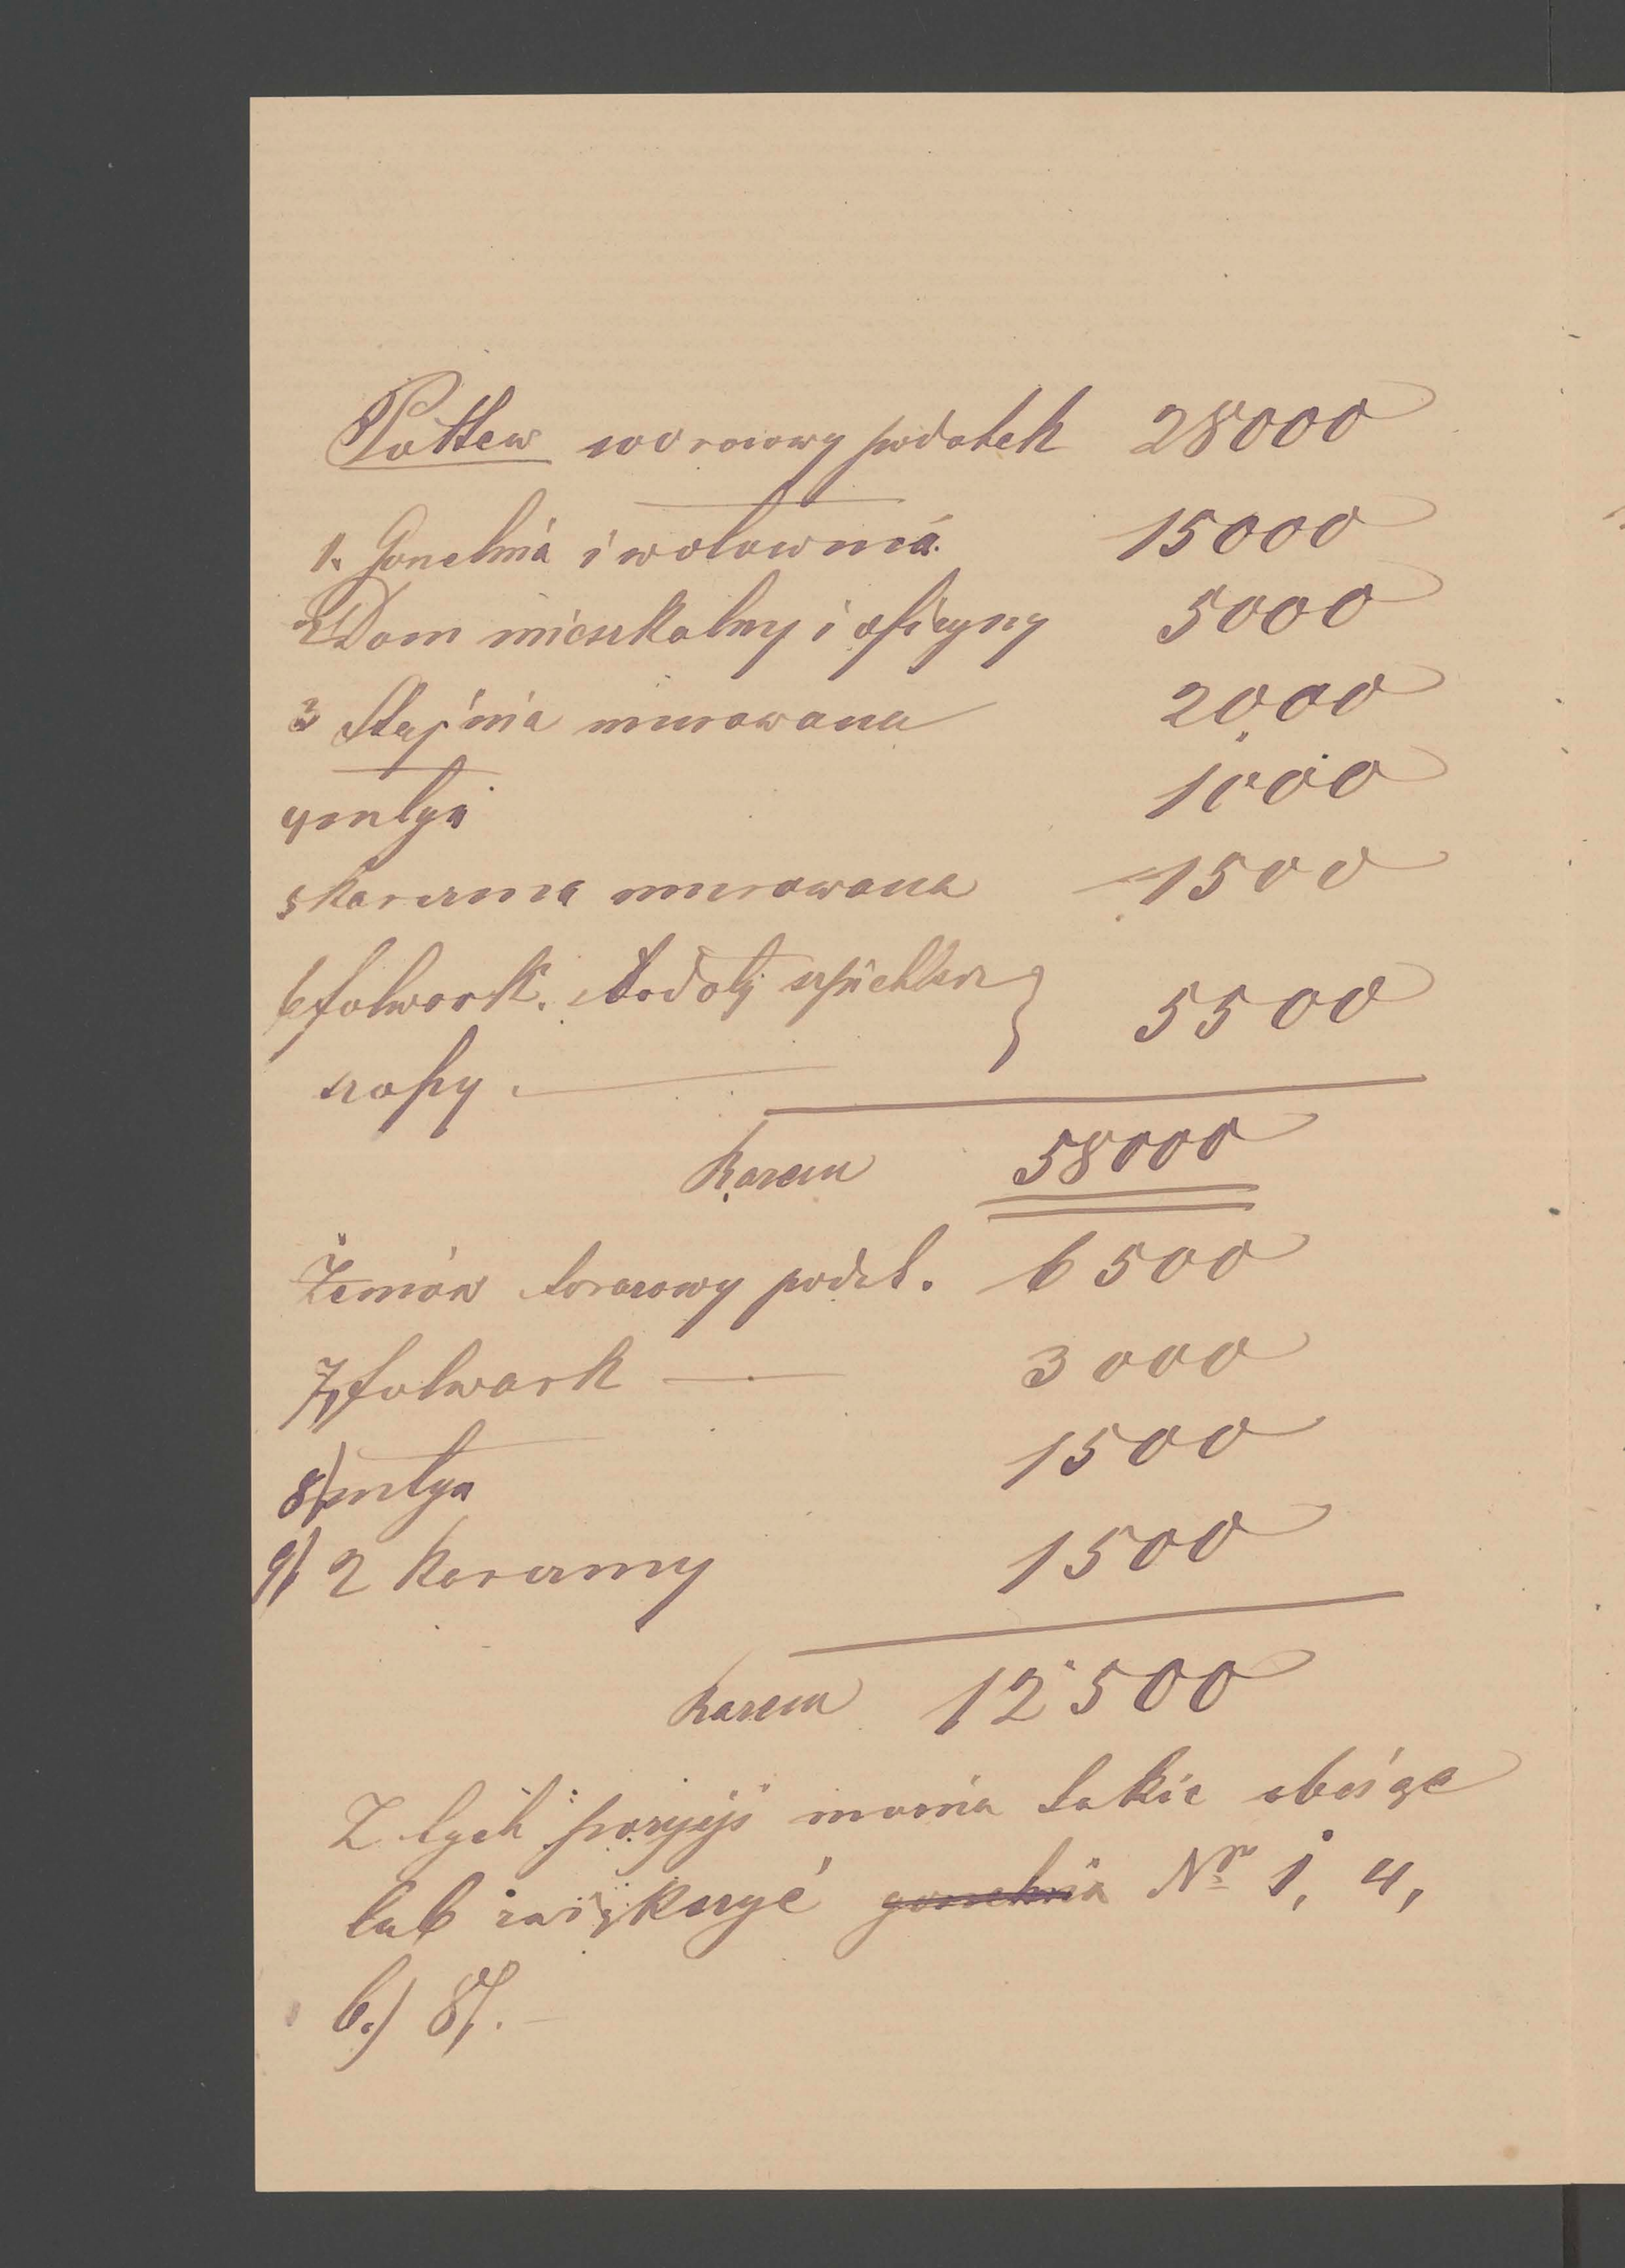 Pottew worocowy podatek 28000
1. Gorzelnia i wołownia 15000
2 Dom mieszkalny i oficyny 5000
3 Stajnia murowana 2000
4 młyn 1000
5 karczma murowana 1500
6 folwark. stodoły szpichlerz } 5500
szopy.
Razem 58000
Żernów torocowy podat. 6500
7) folwark — 3000
8) młyn 1500
9) 2 karczmy 1500
Razem 12500
Z tych pozycyj można takie obciąć
lub zwiększyć gorzelnia Nr 1, 4,
6.) 8).